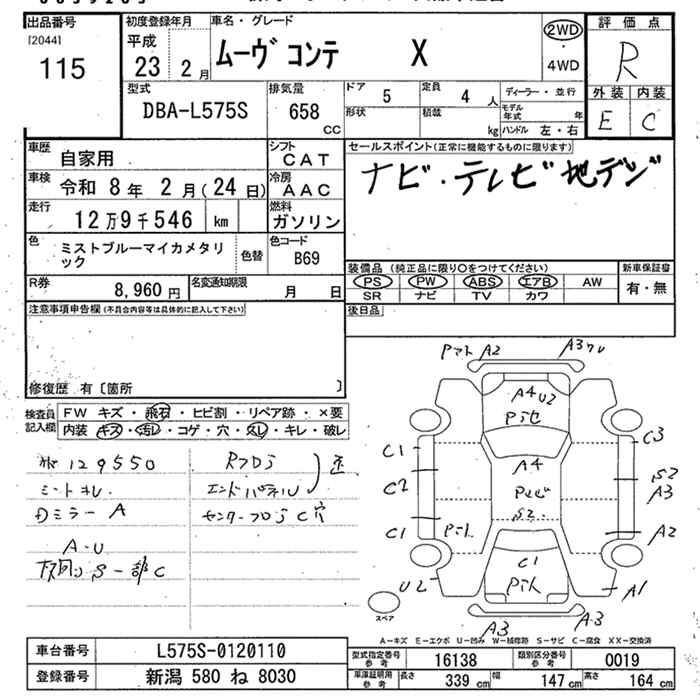 出品番号
[2044]
115
初度登録年月
平成
23 2 月
車名・グレード
ムーヴ コンテ X
2WD
・
4WD
評価点
R
外装 内装
E C
型式
DBA-L575S
排気量
658
CC
ドア 5
定員 4 人
形状
積載 kg
ディーラー・並行
モデル年式 年
ハンドル 左・右
車歴
自家用
シフト
CAT
車検
令和 8 年 2 月(24 日)
冷房
AAC
走行
12 万 9 千 546 km
燃料
ガソリン
色
ミストブルーマイカメタリック
色替
色コード
B69
R券
8,960 円
名変通知期限
月 日
セールスポイント(正常に機能するものに限ります)
ナビ・テレビ地デジ
装備品 (純正品に限り〇をつけてください)
PS PW ABS エアB AW
SR ナビ TV カワ
新車保証書
有・無
後日品
注意事項申告欄(不具合内容等は具体的に記入して下さい)
修復歴 有〔箇所 〕
検査員記入欄
FW キズ・飛石・ヒビ割・リペア跡・×要
内装 キズ・汚レ・コゲ・穴・スレ・キレ・破レ
129550
ミラー A
A-U
S-部C
エンドパネル
センターフロア C穴
A2
A3
A4 U2
A4
C1
C2
C1
C3
S2
A3
A2
S2
C1
U2
A1
A3
A3
スペア
A-キズ E-エクボ U-凹み W-補修跡 S-サビ C-腐食 XX-交換済
車台番号
L575S-0120110
登録番号
新潟 580 ね 8030
型式指定番号
参考
16138
類別区分番号
参考
0019
車庫証明用
参考
長さ 339 cm
幅 147 cm
高さ 164 cm